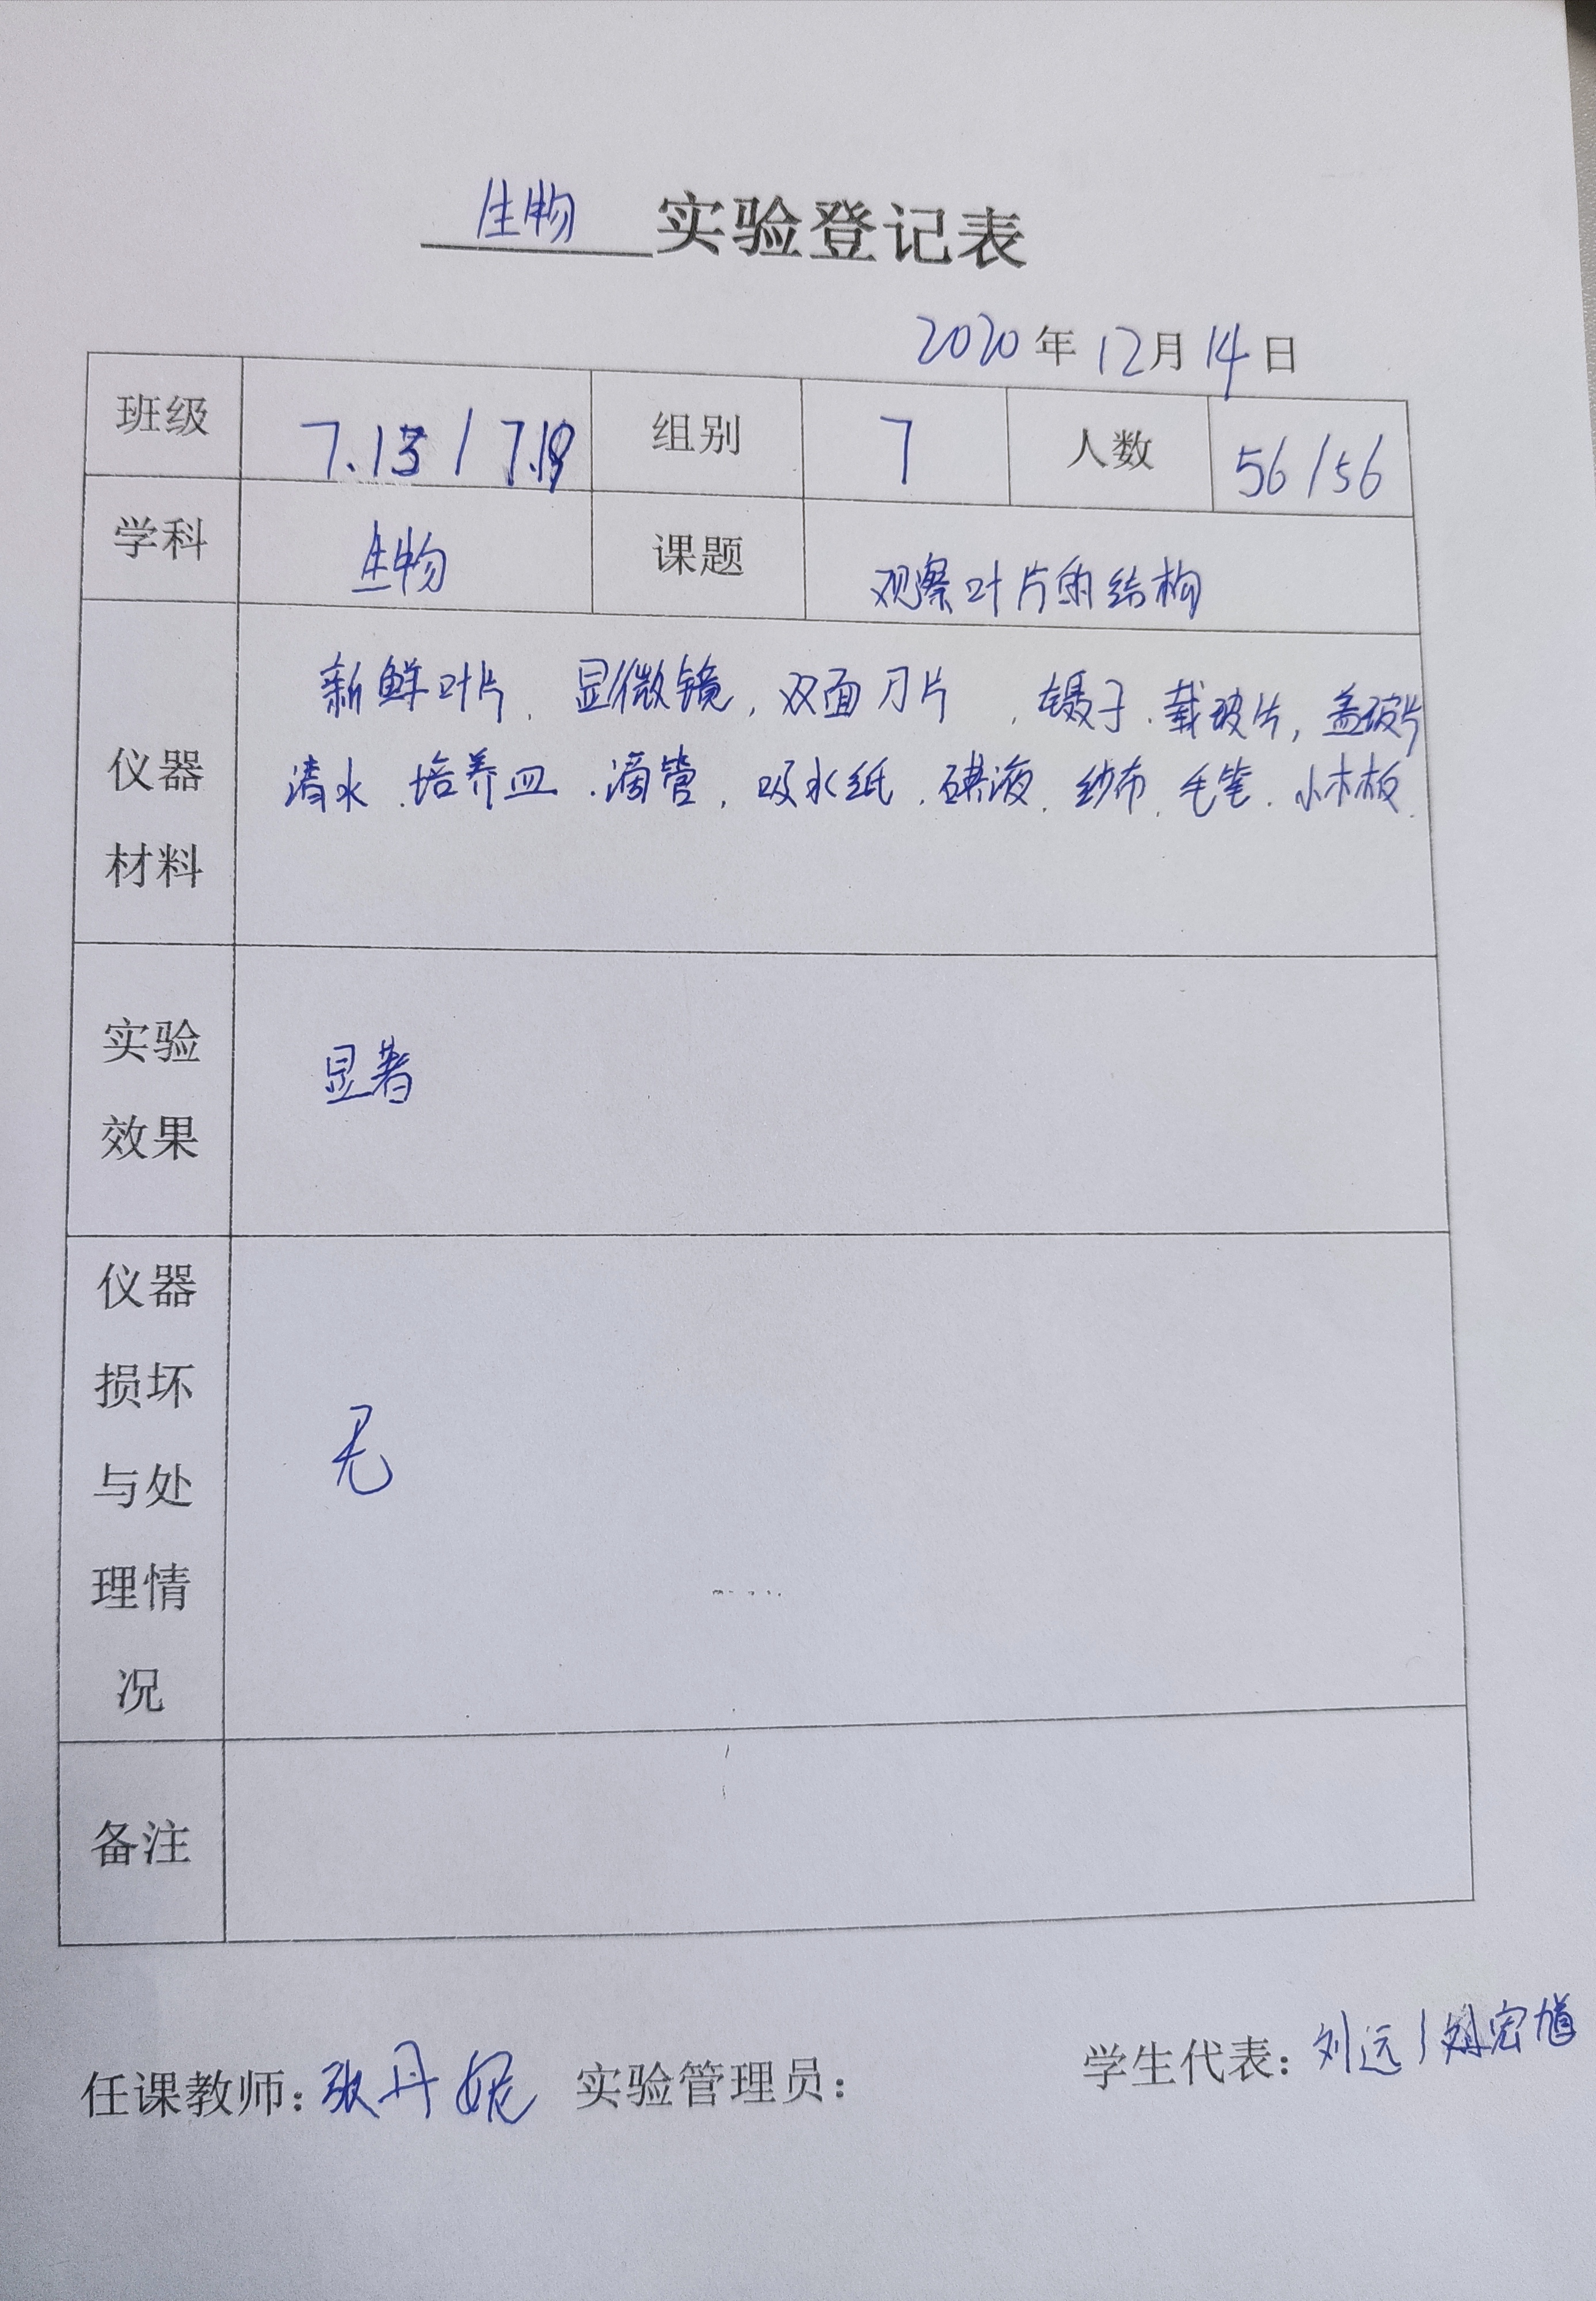 生物 实验登记表
2020年12月14日
班级 7.13 / 组别 7 人数 56/56
学科 生物 课题 观察叶片的结构
新鲜叶片、显微镜,双面刀片、镊子、载玻片,盖玻片
仪器 清水、培养皿、滴管、吸水纸、碘液、纱布、毛笔、小木板、
材料
实验 显著
效果
仪器
损坏
与处 无
理情
况
备注
任课教师:张丹妮 实验管理员: 学生代表:刘远/